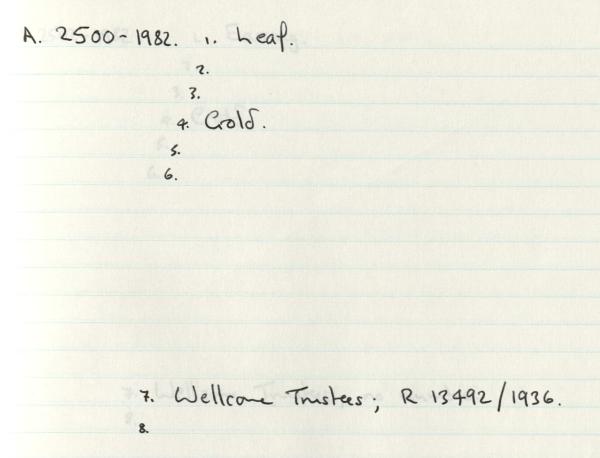 A. 2500-1982. 1. Leaf.
2.
3.
4. Gold.
5.
6.
7. Wellcome Trustees; R 13492/1936.
8.